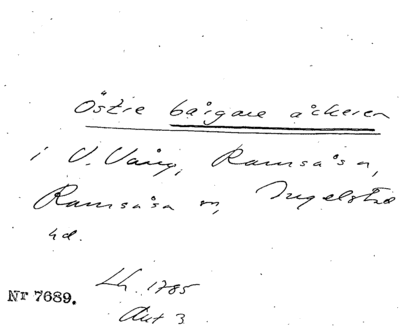 Östre bårgare åckeren
i V. Vång, Ramsåsa,
Ramsåsa sn, Ingelstad
hd.
Lh. 1785
Akt 3
Nr 7689.